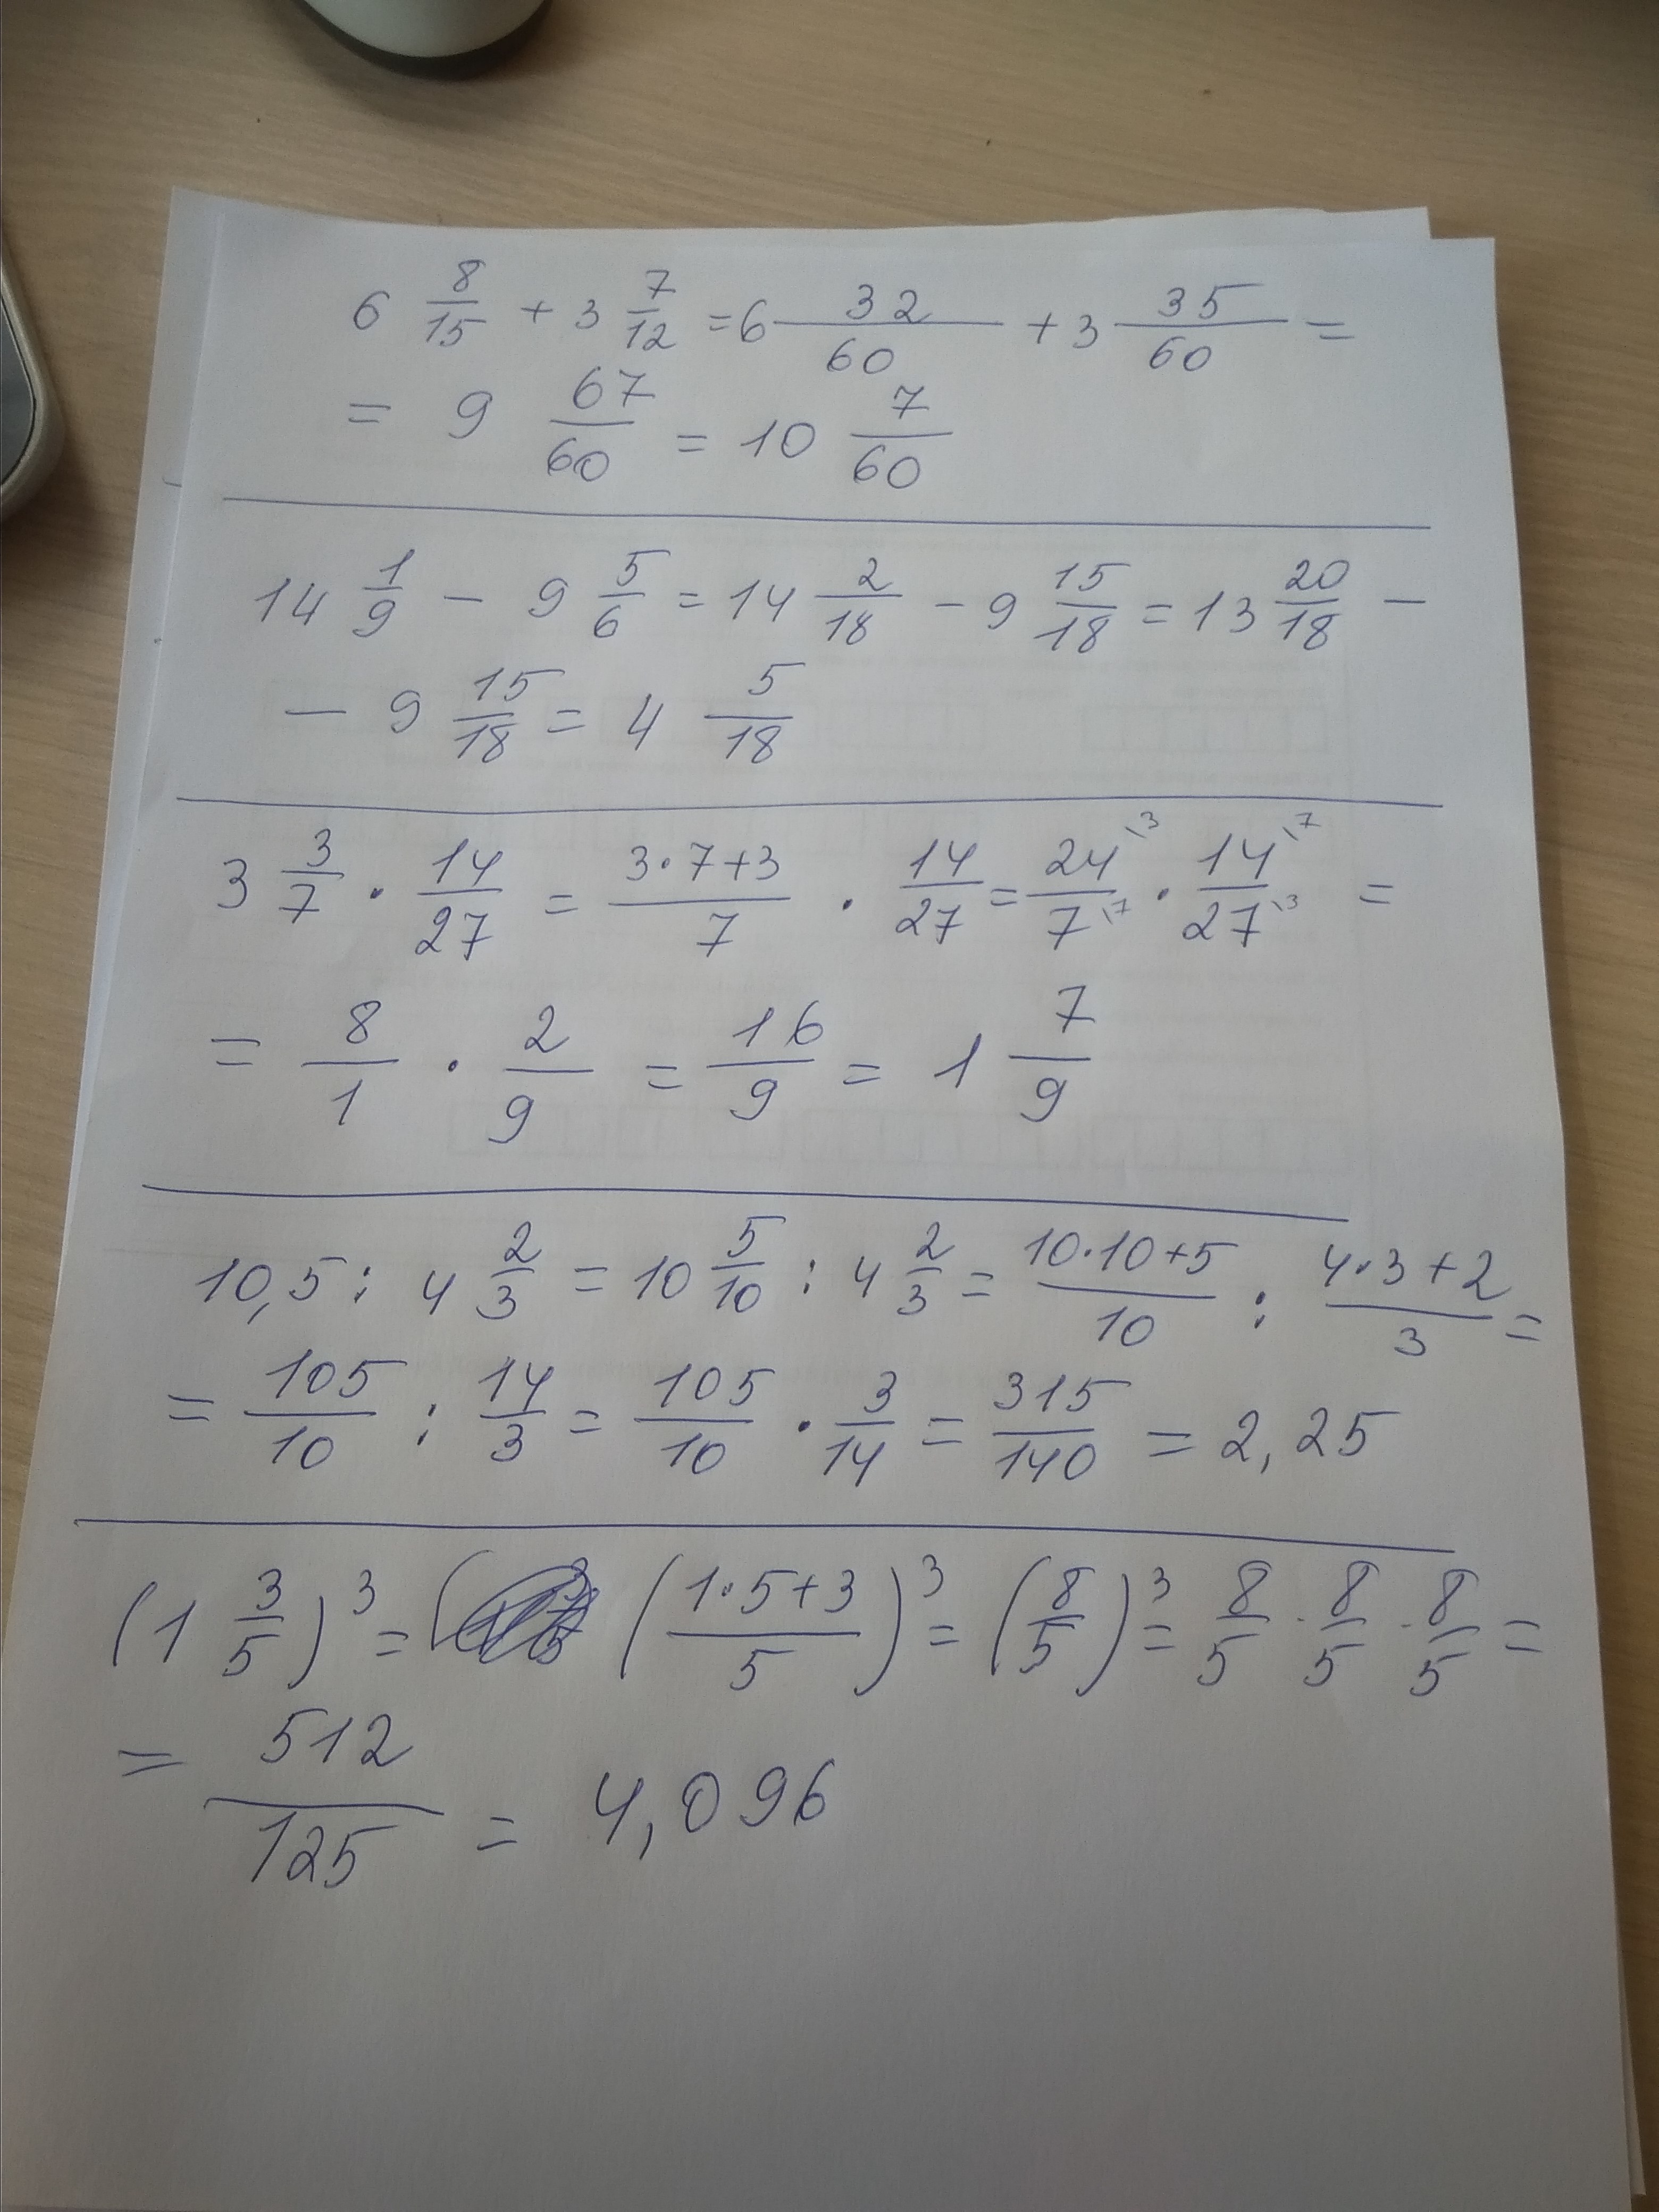 6 8/15 + 3 7/12 = 6 32/60 + 3 35/60 =
= 9 67/60 = 10 7/60
14 1/9 - 9 5/6 = 14 2/18 - 9 15/18 = 13 20/18 -
- 9 15/18 = 4 5/18
3 3/7 · 14/27 = (3·7+3)/7 · 14/27 = 24\3/7\7 · 14\7/27\3 =
= 8/1 · 2/9 = 16/9 = 1 7/9
10,5 : 4 2/3 = 10 5/10 : 4 2/3 = (10·10+5)/10 : (4·3+2)/3 =
= 105/10 : 14/3 = 105/10 · 3/14 = 315/140 = 2,25
(1 3/5)³ = ( ((1·5+3)/5)³ = (8/5)³ = 8/5 · 8/5 · 8/5 =
= 512/125 = 4,096